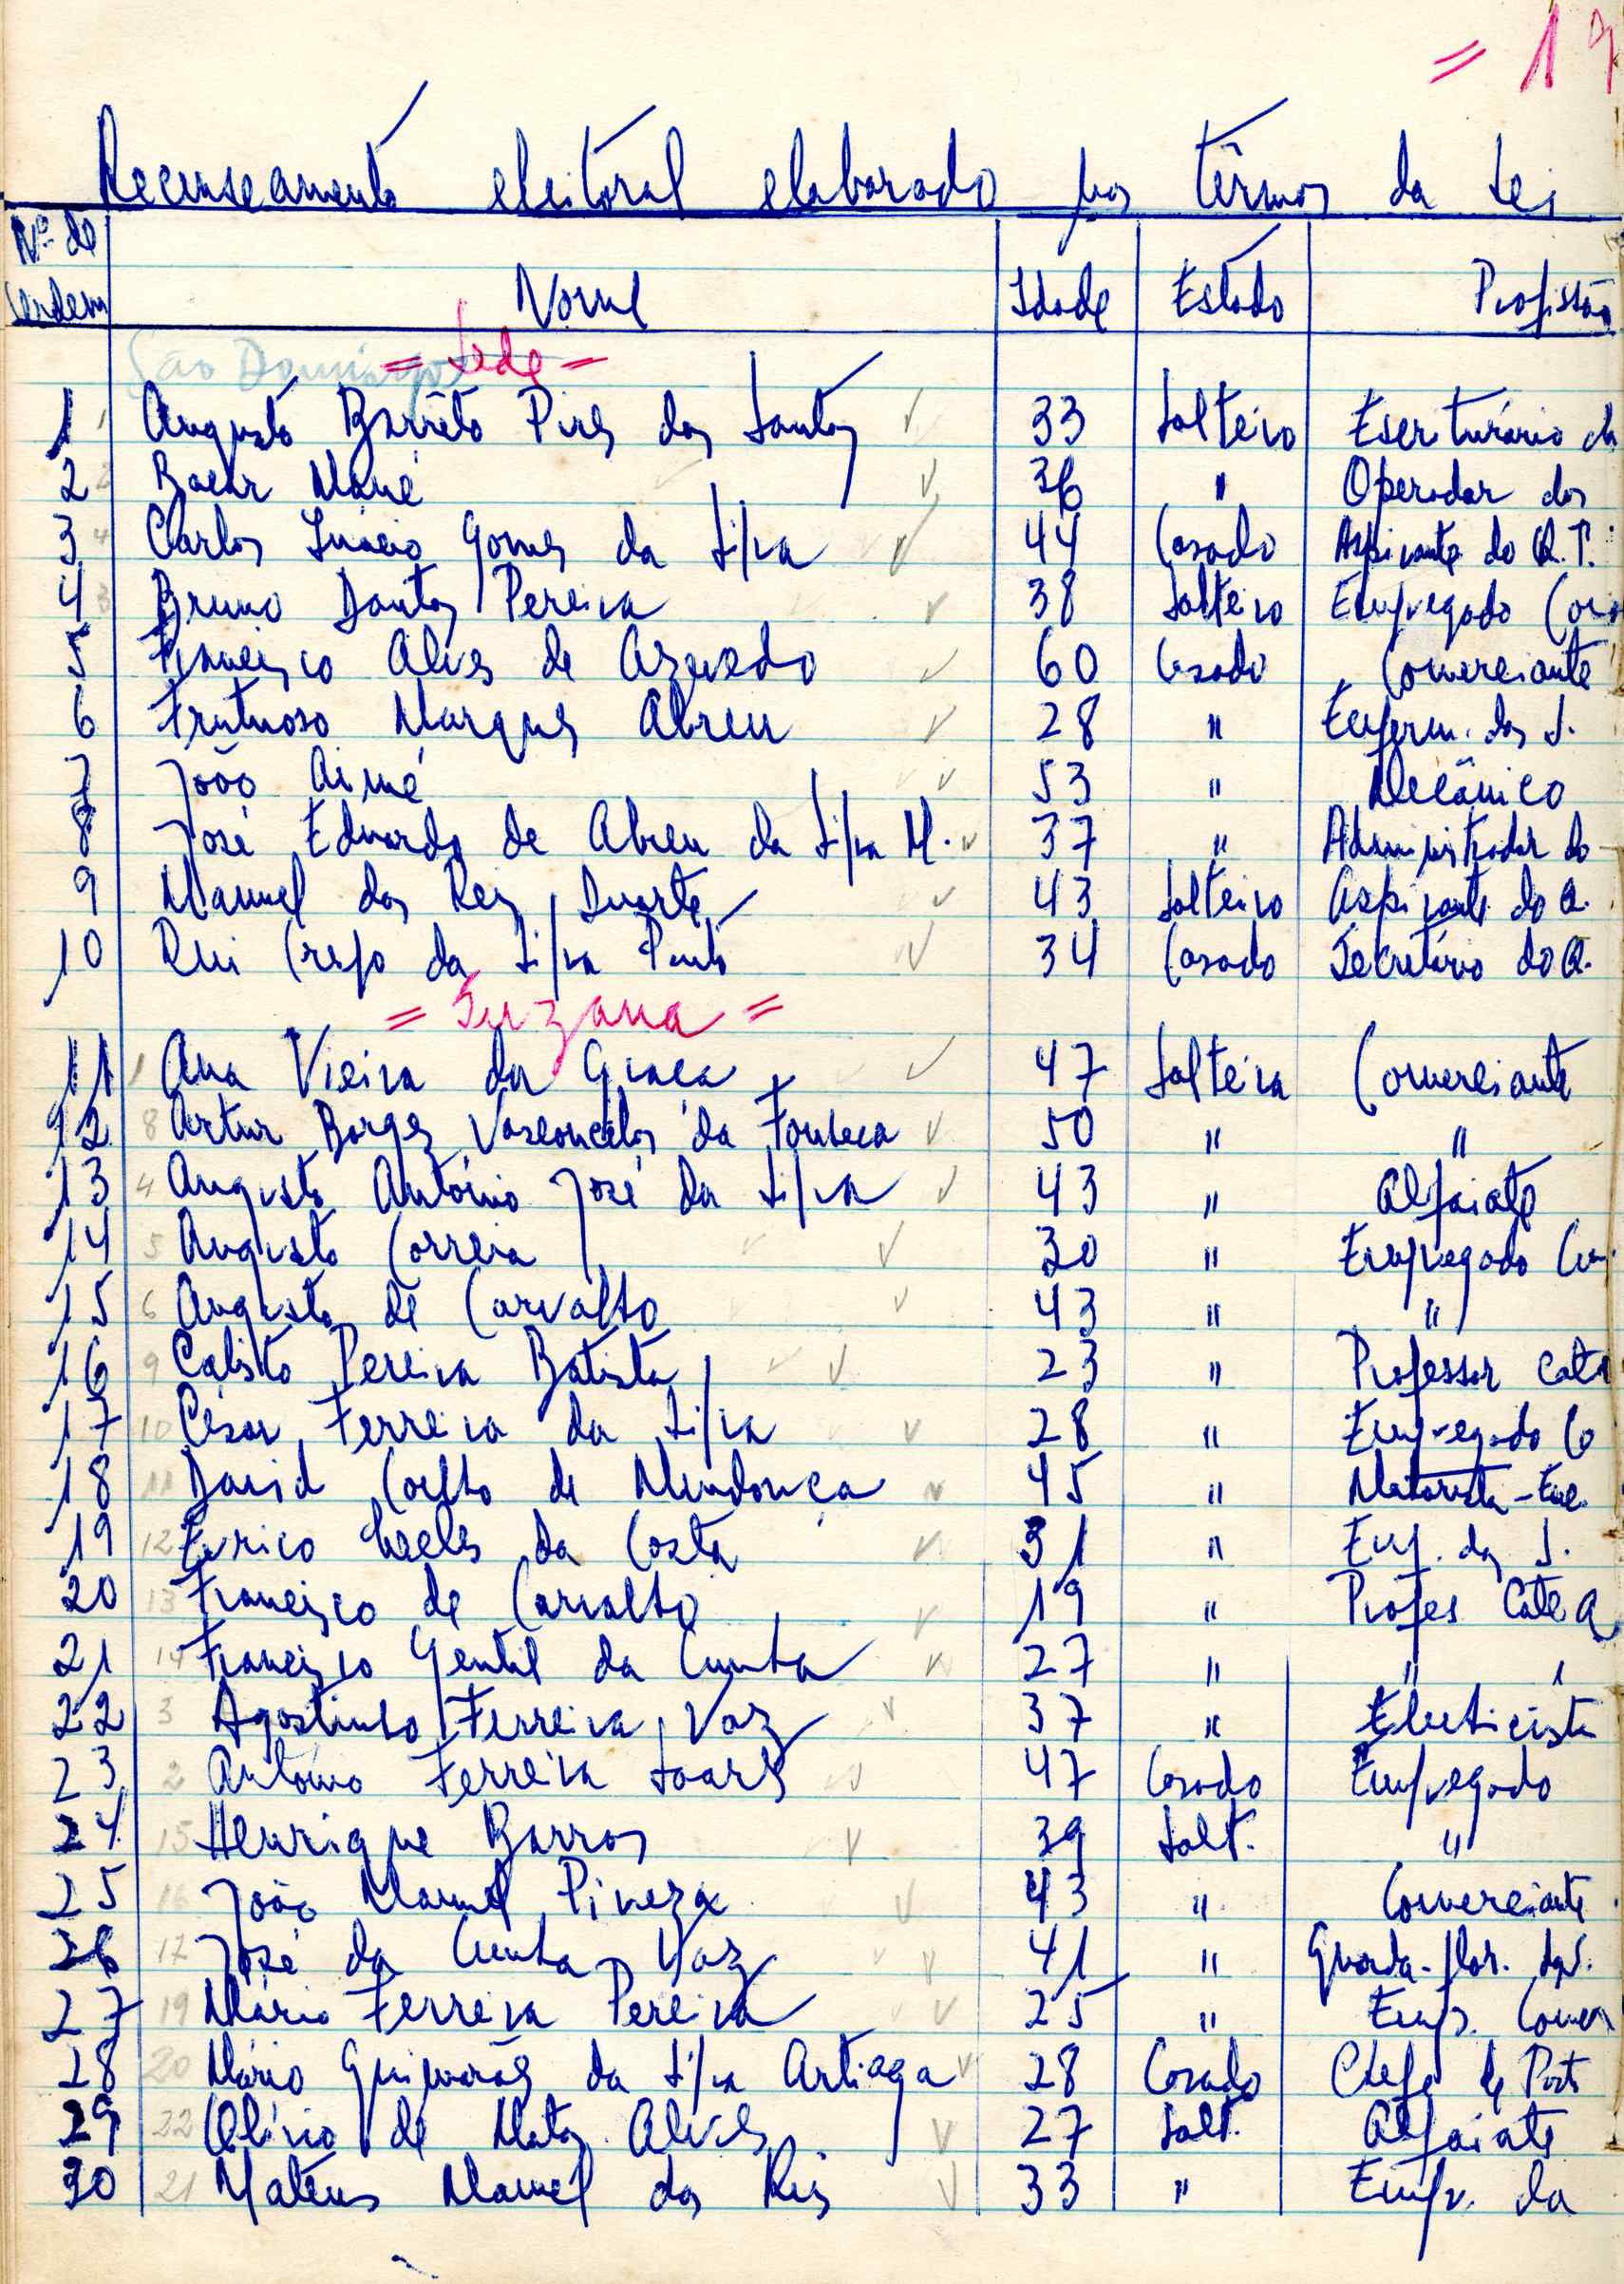 = 19
Recenseamento eleitoral elaborado nos têrmos da Lei
Nº de ordem Nome Idade Estado Profissão
São Domingos = Sede =
1 1 Augusto Barrêto Pires dos Santos 33 Solteiro Escriturário da
2 2 Bacar Mané 36 " Operador dos
3 4 Carlos Inácio Gomes da Silva 44 Casado Aspirante do Q. T.
4 3 Bruno Dantas Pereira 38 Solteiro Empregado Com
5 Francisco Alves de Azevedo 60 Casado Comerciante
6 Frutuoso Marques Abreu 28 " Enferm. dos S.
7 João Aimé 53 " Mecânico
8 José Eduardo de Abreu da Silva M. 37 " Administrador do
9 Manuel dos Reis Duarte 43 Solteiro Aspirante do Q.
10 Rui Crespo da Silva Pinto 34 Casado Secretário do Q.
= Suzana =
11 1 Ana Vieira da Graça 47 Solteira Comerciante
12 8 Artur Borges Vasconcelos da Fonseca 50 " "
13 4 Augusto António José da Silva 43 " Alfaiate
14 5 Augusto Correia 30 " Empregado Com
15 6 Augusto de Carvalho 43 " "
16 9 Calisto Pereira Batista 23 " Professor Cate
17 10 César Ferreira da Silva 28 " Empregado Co
18 11 David Coelho de Mendonça 45 " Motorista-
19 12 Eurico Teeles da Costa 31 " Emp. dos S.
20 13 Francisco de Carvalho 19 " Profes Cateq
21 14 Francisco Gentil da Cunha 27 " "
22 3 Agostinho Ferreira Vaz 37 " Electricista
23 2 António Ferreira Soares 47 Casado Empregado
24 15 Henrique Barros 39 Solt. "
25 16 João Manuel Pireza 43 " Comerciante
26 17 José da Cunha Vaz 41 " Guarda-flor. dos S.
27 19 Mário Ferreira Pereira 25 " Emp. Comer
28 20 Mário Guimarães da Silva Artiaga 28 Casado Chefe de Posto
29 22 Olívio de Matos Alves 27 Solt. Alfaiate
30 21 Mateus Manuel dos Reis 33 " Emp. da